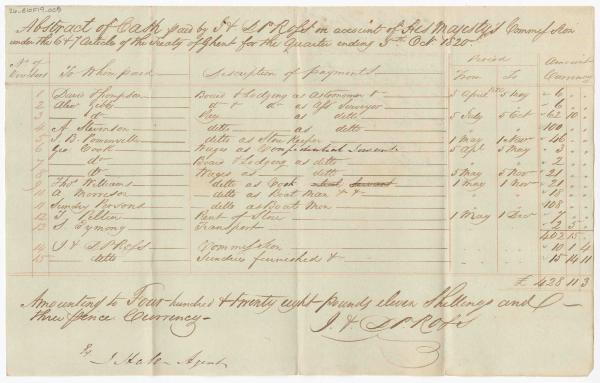 Abstract of Cash paid by J & D P Ross on account of His Majesty's Commission
under the 6 & 7 Article of the Treaty of Ghent for the Quarter ending 5th Oct 1820.
No of Vouchers To Whom paid Description of payments Period From To Amount Currency
1 David Thompson Board & Lodging as Astronomer & 5 April 1820 5 May 6 " "
2 Alexr Gibb do & do as Asst Surveyor 6 " "
3 do Pay as ditto 5 July 5 Oct 62 10 "
4 A Stevenson ditto as ditto 100 " "
5 J. B. ditto as Store Keeper 1 May 1 Nov 46 " "
6 Geo Cook Wages as Confidential Servant 5 Apl 5 May 3 " "
7 do Board & Lodging as ditto 2 " "
8 do Wages as ditto 5 May 5 Nov 21 " "
9 Thos Williams ditto as Cook 1 May 1 Nov 21 " "
10 A Morrison ditto as Boat Man & & 18 " "
11 Sundry Persons ditto as Boat Men 108 " "
12 Rent of Store 1 May 1 Dec 7 " "
13 S. Transport 2 5 "
403 15 "
14 J & D P Ross Commission 10 1 4
15 ditto Sundries furnished & 15 14 11
£ 428 11 3
Amounting to Four hundred & twenty eight pounds eleven Shillings and
three pence Currency
J & D P Ross
J Hale Agent